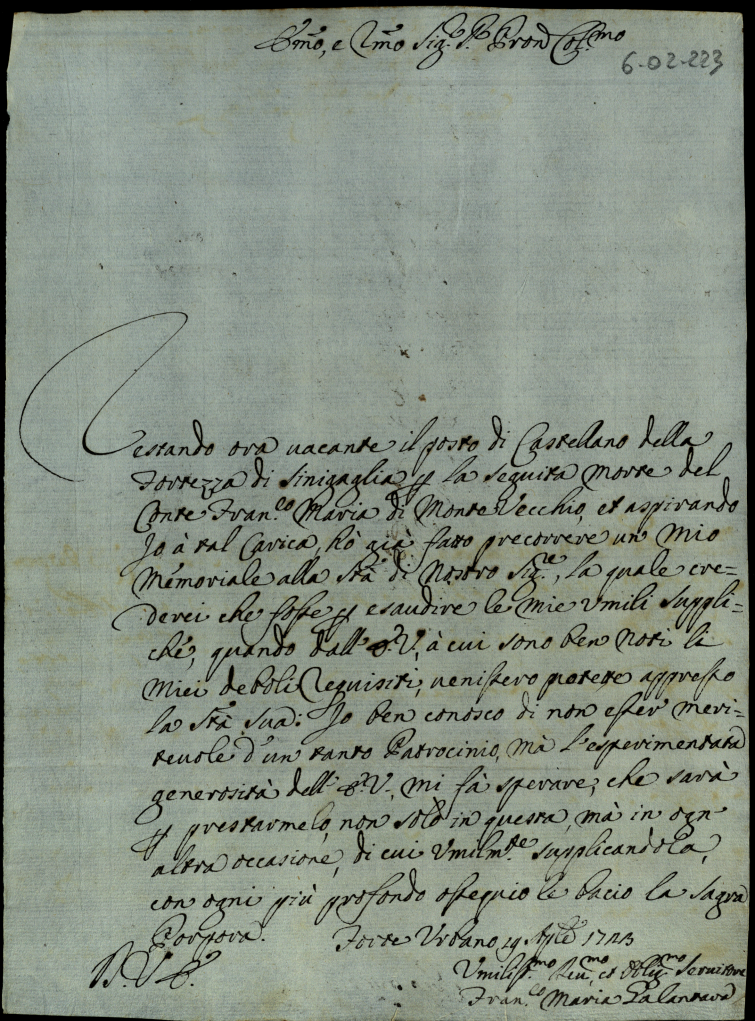 Emo, e Rmo Sig.r P.re Pron Col.mo
6-02-223
Restando ora uacante il posto di Castellano della
Fortezza di Sinigaglia p la seguita morte del
Conte Fran.co Maria di Monte Vecchio, et aspirando
Jo à tal Carica, hò già fatto precorrere un mio
Memoriale alla Stà di Nostro Sig.re, la quale cre=
derei che fosse p esaudire le mie umili suppli=
che, quando dall' E.V., à cui sono ben noti li
miei deboli Requisiti, uenissero portate appresso
la Stà Sua: Jo ben conosco di non esser meri=
teuole d'un tanto Patrocinio, mà l'esperimentata
generosità dell' E.V., mi fà sperare, che sarà
p prestarmelo, non solo in questa, mà in ogn'
altra occasione, di cui umilm.te supplicandola,
con ogni più profondo ossequio le bacio la Sagra
Porpora. Forte Urbano 19 Aple 1743
Umiliss.mo Deu.mo et Oblig.mo Seruitore
Fran.co Maria